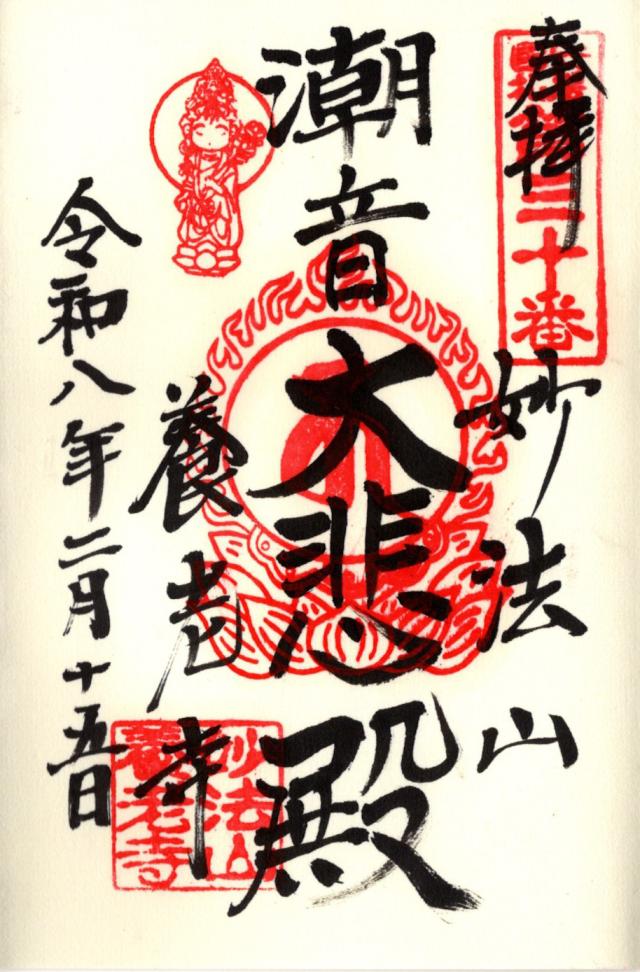 奉拝
三十番
妙法山
潮音
大悲殿
養老寺
令和八年二月十五日
妙法山
養老寺